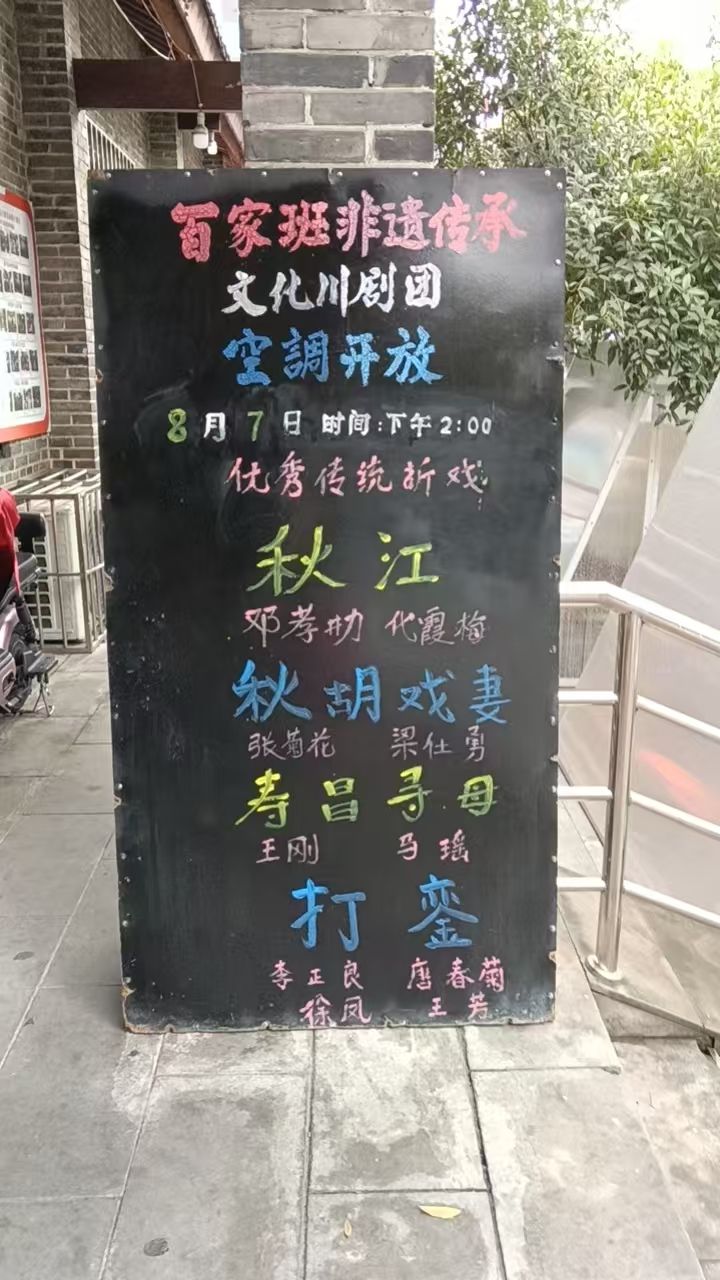 百家班非遗传承
文化川剧团
空調开放
8月7日 时间:下午2:00
优秀传统折戏
秋江
邓孝勋 代霞梅
秋胡戏妻
张菊花 梁仕勇
寿昌寻母
王刚 马瑶
打銮
李正良 唐春菊
徐凤 王芳